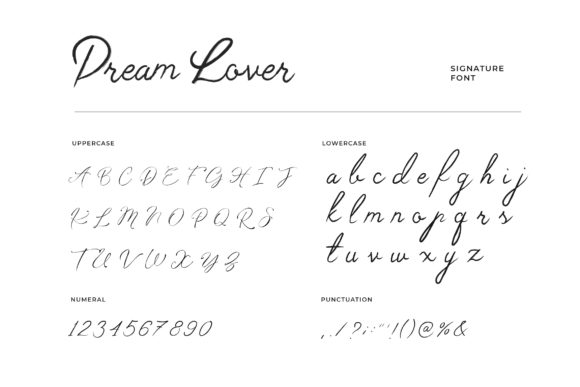 Dream Lover
SIGNATURE
FONT
UPPERCASE
A B C D E F G H I J
K L M N O P Q R S
T U V W X Y Z
LOWERCASE
a b c d e f g h i j
k l m n o p q r s
t u v w x y z
NUMERAL
1234567890
PUNCTUATION
, . / ? ; : " " ! ( ) @ % &